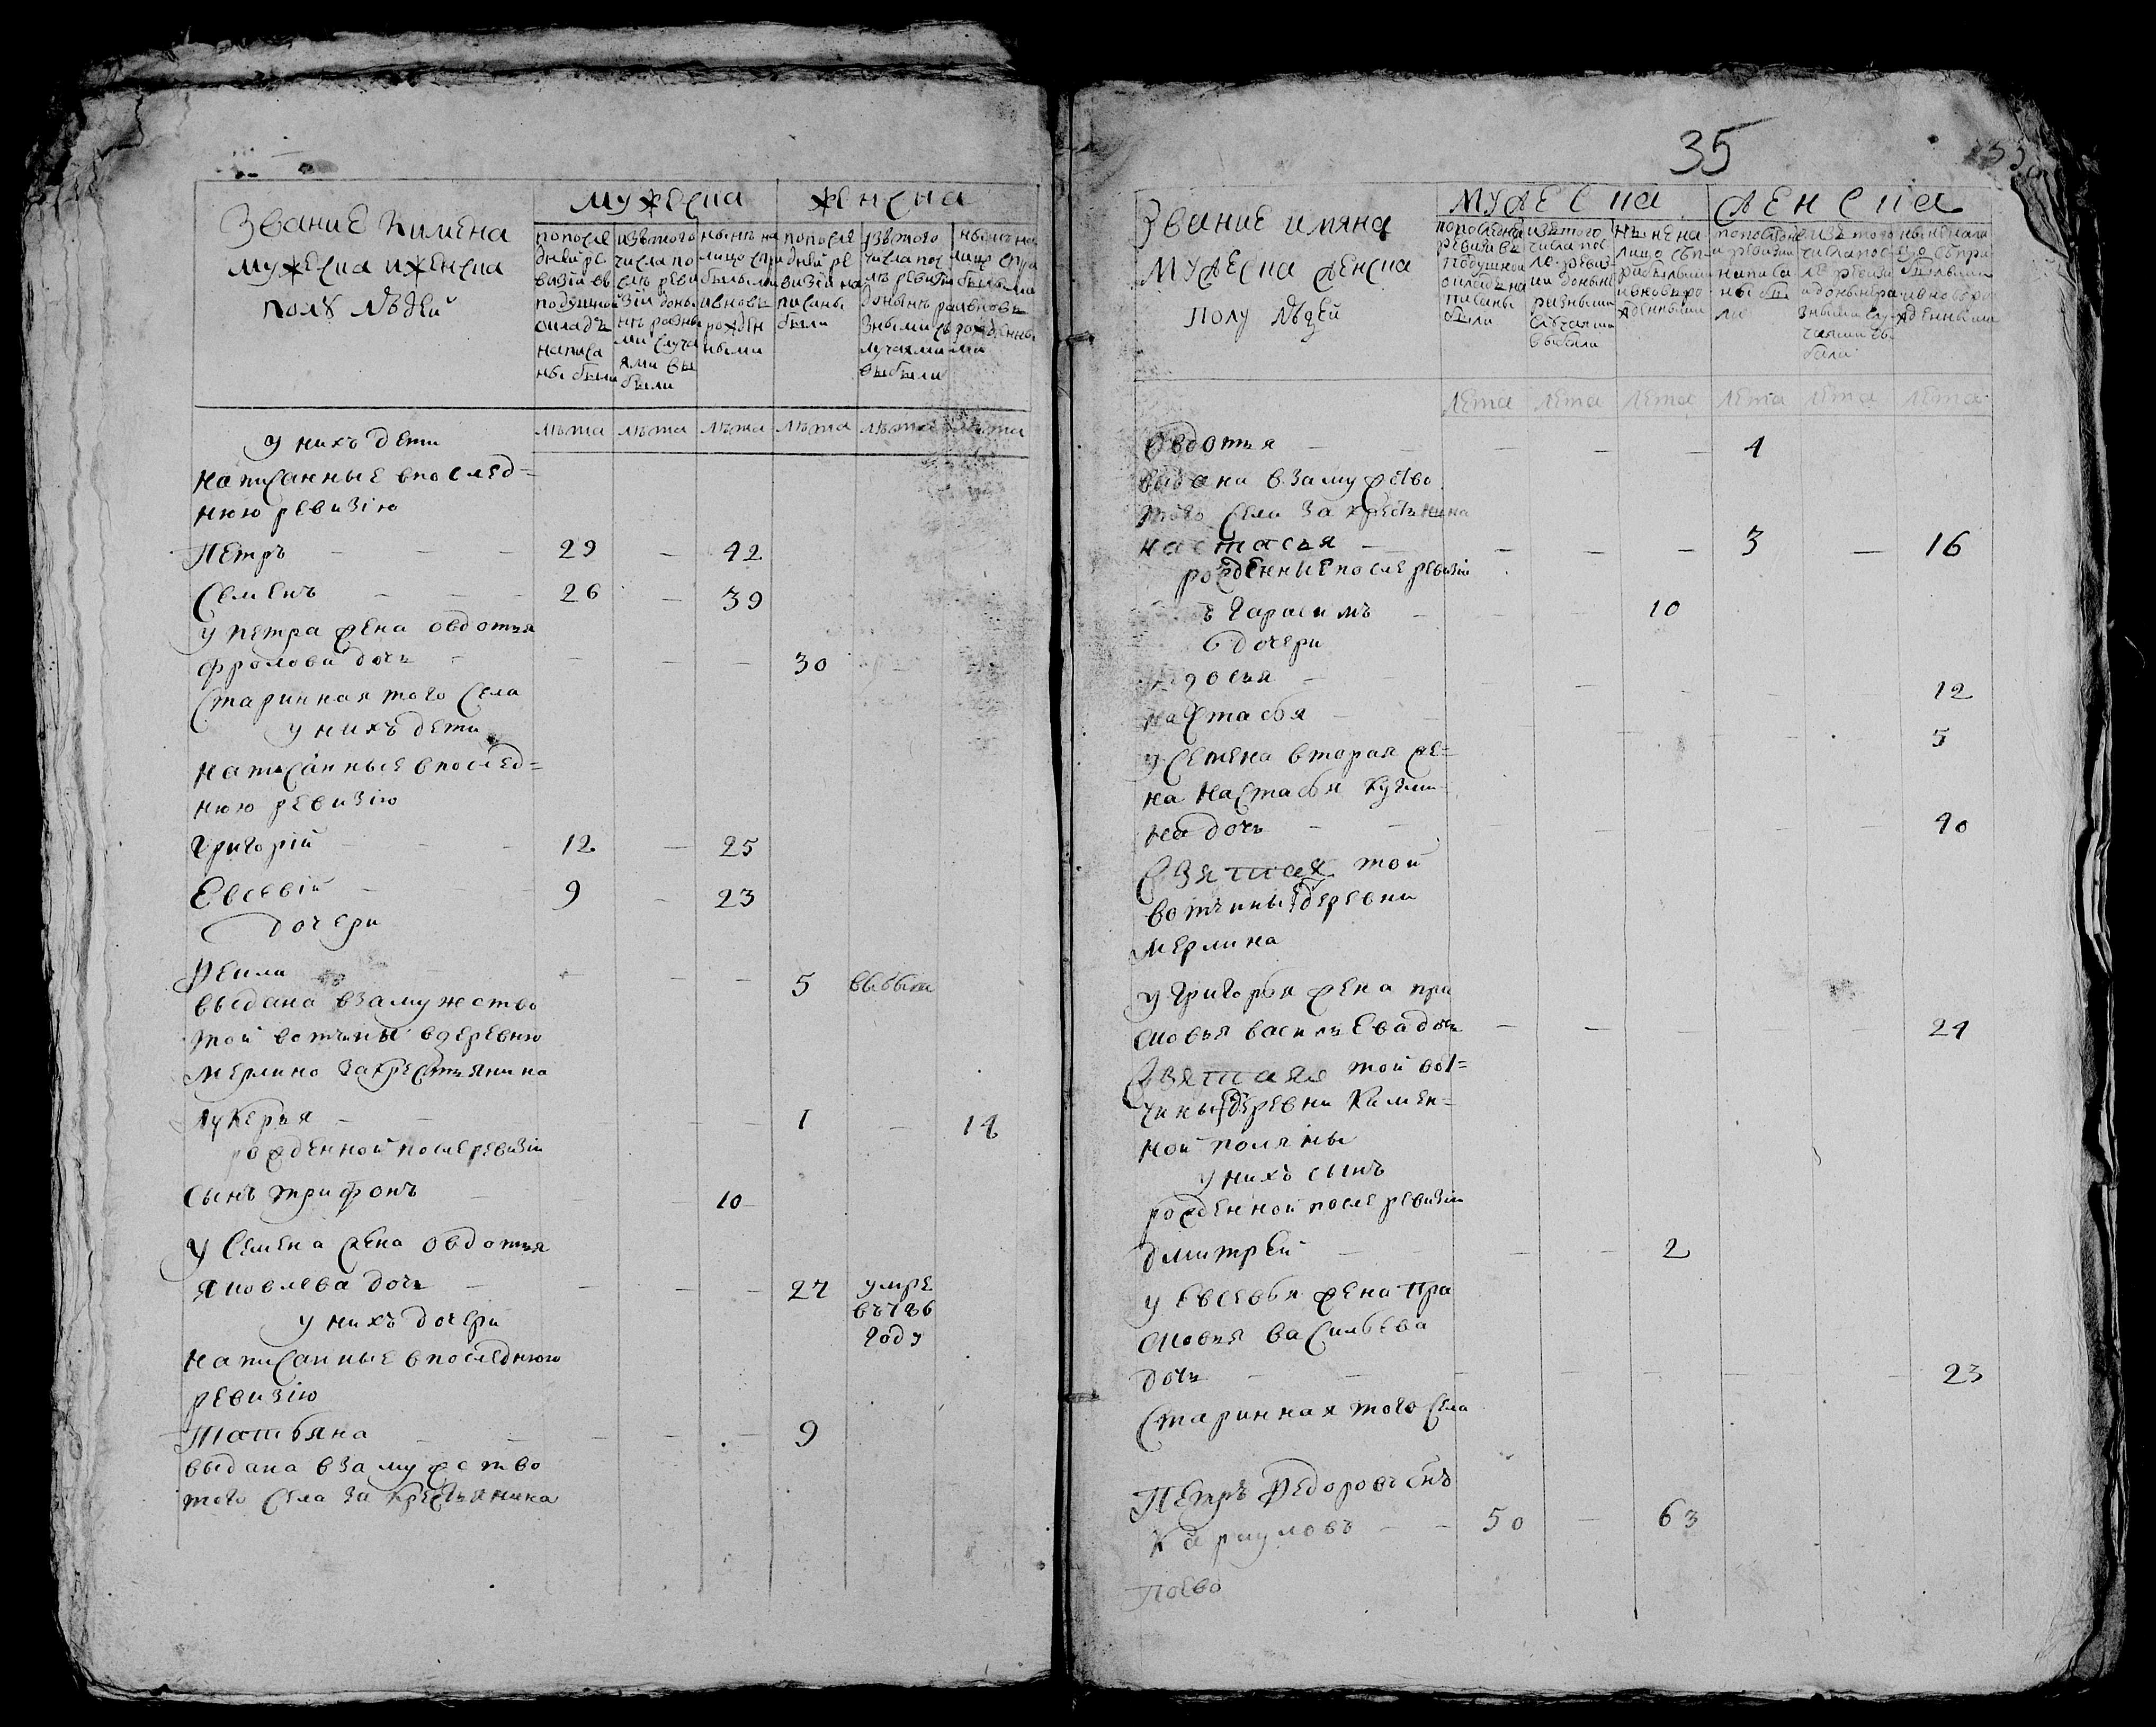 Звание и имена
мужеска и женска
полу людей
мужеска
женска
по после
дней ре
визiи въ
подушной
окладъ
написа
ны были
изъ того
числа по
слѣ реви
зiи до ны
нѣ разны
ми случа
ями вы
были
нынѣ на
лицо съ при
былыми
и вновь
рожден
ными
по после
дней ре
визiи на
писаны
были
изъ того
числа пос
лѣ ревизiи
до нынѣ ра
зными сл
учаями
выбыли
нынѣ на
лицо съ при
былыми
и вновь
рожденны
ми
лѣта лѣта лѣта лѣта лѣта лѣта
у нихъ дети
написанные в послед=
нюю ревизiю
Петръ — — — 29 — 42
Семенъ — — — 26 — 39
у петра жена овдотья
фролова дочь — — — — 30
старинная того села
у нихъ дети
написанные в послед=
нюю ревизiю
Григорiй — — — 12 — 25
Евсевiй — — 9 — 23
дочери
выдана в замужество 5 выбыла
той вотчины в деревню
мерлино за крестьянина
лукерья — — — — — 1 — 14
рожденной после ревизiи
сынъ трифонъ — — 10
у семена жена овдотья
яковлева дочь — — — — 27 умре
въ 786
году
у нихъ дочери
написанные в последнюю
ревизiю
Татьяна — — — — — 9
выдана в замужество
того села за крестьянина
35
Звание имяна
мужеска женска
полу людей
мужеска
женска
по последней
ревизiи въ
подушной
окладъ на
писаны
были
изъ того
числа пос
ле ревиз
ии до ныне
разными
случаями
выбыли
ныне на
лицо съ п
рибылыми
и вновь ро
жденными
по последне
й ревизiи
написа
ны бы
ли
изъ того
числа пос
ле ревизи
и до ныне ра
зными слу
чаями вы
были
ныне нали
цо съ при
былыми
и вновь ро
жденными
лета лета лета лета лета лета
Овдотья — — — — 4
выдана в замужство
того села за крестьянина
настасья — — — — 3 — 16
рожденные после ревизiи
ъ Гарасимъ — — — 10
дочери
— — — — — 12
настасья — — — — 5
у семена вторая же=
на настасья кузми
на дочь — — — 40
взятая той
вотчины деревни
мерлина
у григорья жена пра
сковья васильева дочь — — 24
взятая той вот=
чины деревни камен=
ной поляны
у нихъ сынъ
рожденной после ревизiи
дмитрей — — — — 2
у евсевья жена пра
сковья васильева
дочь — — — — — — — 23
старинная того села
Петръ Федоровъ снъ
— — 50 — 63